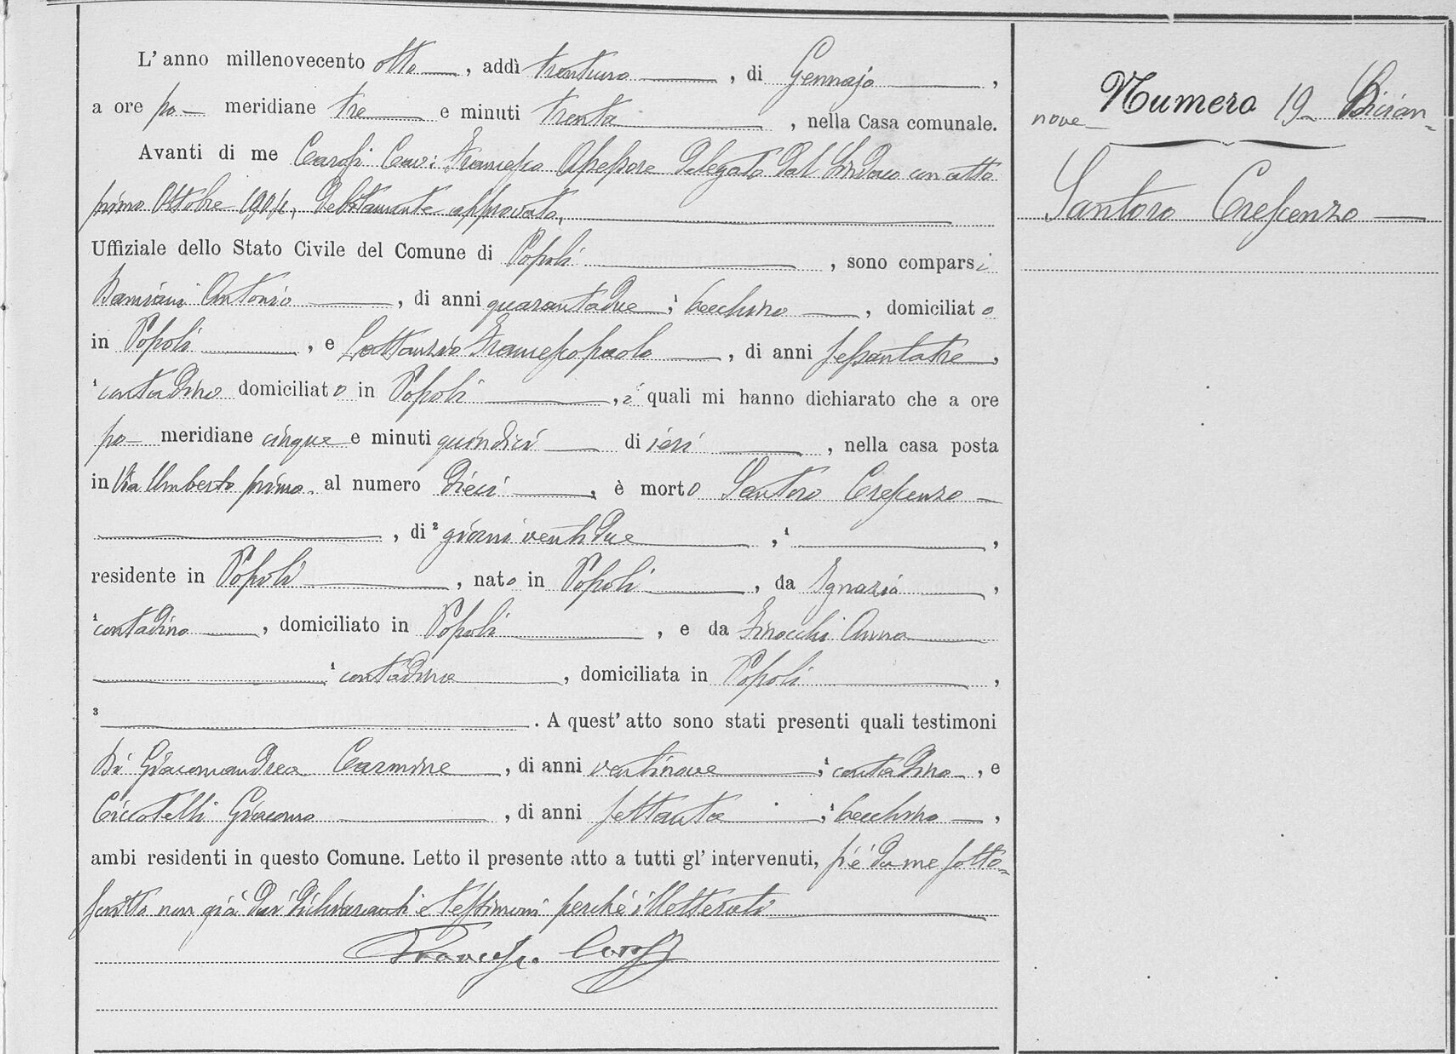 L'anno millenovecento otto, addì trentuno, di Gennajo,
a ore po meridiane tre e minuti trenta, nella Casa comunale.
Avanti di me Carosi Cav: Francesco Assessore delegato dal Sindaco con atto
primo Ottobre 1904, debitamente approvato,
Uffiziale dello Stato Civile del Comune di Popoli, sono comparsi
Damiani Antonio, di anni quarantadue, ¹ becchino, domiciliato
in Popoli, e Lattanzio Francescopaolo, di anni sessantatre,
¹ contadino domiciliato in Popoli, i quali mi hanno dichiarato che a ore
po meridiane cinque e minuti quindici di ieri, nella casa posta
in Via Umberto primo al numero dieci, è morto Santoro Crescenzo
, di ² giorni ventidue, ¹ ,
residente in Popoli, nato in Popoli, da Ignazio,
¹ contadino, domiciliato in Popoli, e da Finocchi Anna
¹ contadina, domiciliata in Popoli,
³ . A quest'atto sono stati presenti quali testimoni
Di Giacomandrea Carmine, di anni ventinove, ¹ contadino, e
Ciccotelli Giacomo, di anni settanta, ¹ becchino,
ambi residenti in questo Comune. Letto il presente atto a tutti gl'intervenuti, s'è da me sotto-
scritto non già dai dichiaranti e testimoni perché illetterati
Francesco Carosi
Numero 19 Dician-
nove
Santoro Crescenzo